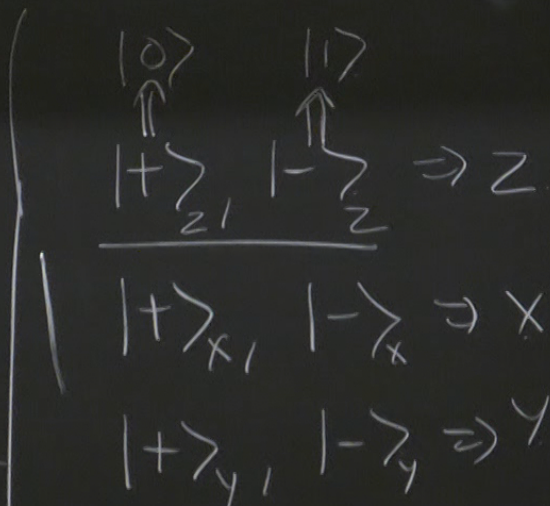 |0⟩ |1⟩
⇑ ⇑
|+⟩z, |-⟩z ⇒ Z
|+⟩x, |-⟩x ⇒ X
|+⟩y, |-⟩y ⇒ Y